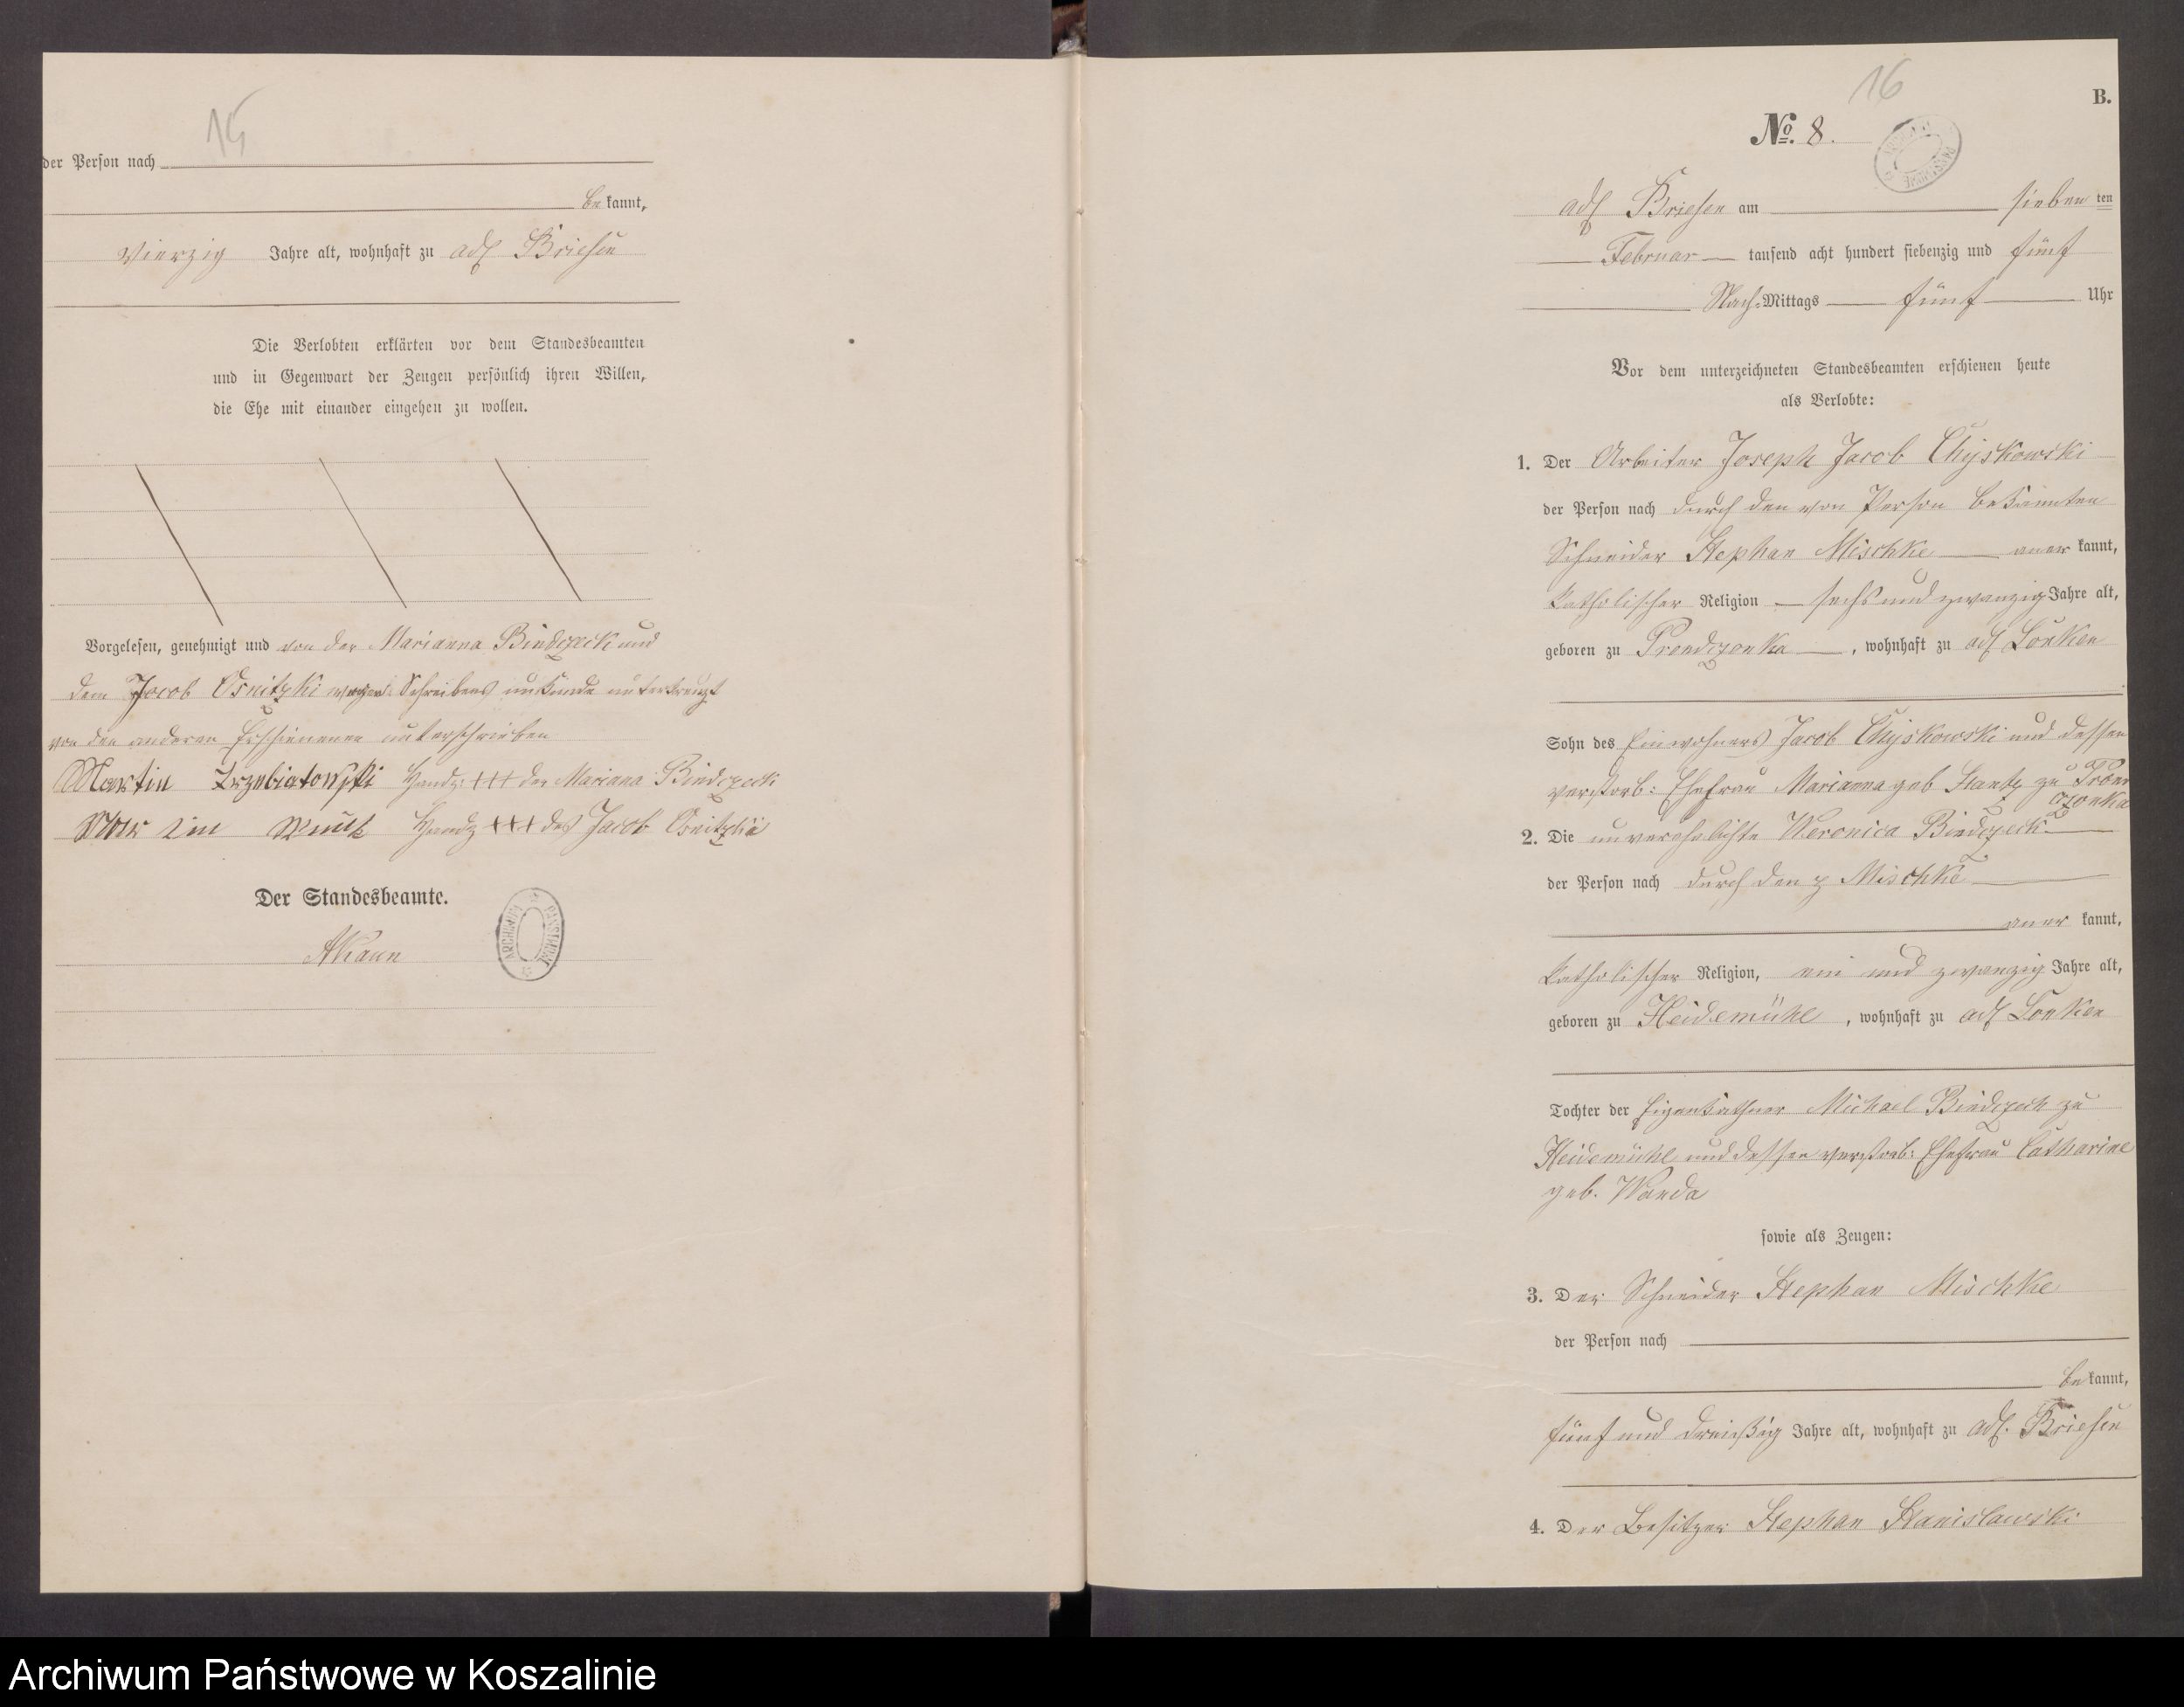 15
der Person nach
be kannt,
vierzig Jahre alt, wohnhaft zu adl Briesen
Die Verlobten erklärten vor dem Standesbeamten
und in Gegenwart der Zeugen persönlich ihren Willen,
die Ehe mit einander eingehen zu wollen.
Vorgelesen, genehmigt und von der Marianna Bindczeck und
dem Jacob Osnitzki wegen Schreibens unkunde unterkreuzt
von den anderen Erschienenen unterschrieben
Martin Trzebiatowski Handz: +++ der Mariana Bindczeck
Handz +++ des Jacob Osnitzki
Der Standesbeamte.
ARCHIWUM PAŃSTWOWE
16
B.
No. 8.
adl Briesen am sieben ten
Februar tausend acht hundert siebenzig und fünf
Nach-Mittags fünf Uhr
Vor dem unterzeichneten Standesbeamten erschienen heute
als Verlobte:
1. Der Arbeiter Joseph Jacob Chyskowski
der Person nach durch den von Person bekannten
Schneider Stephan Mischke aner kannt,
katholischer Religion sechs und zwanzig Jahre alt,
geboren zu Prondzonka, wohnhaft zu adl Lonken
Sohn des Einwohners Jacob Chyskowski und dessen
verstorb: Ehefrau Marianna geb zu Pron
dzonka
2. Die unverehelichte Veronica Bindczeck
der Person nach durch den p Mischke
aner kannt,
katholischer Religion, ein und zwanzig Jahre alt,
geboren zu Heidemühl, wohnhaft zu adl Lonken
Tochter der Eigenkäthner Michael Bindczeck zu
Heidemühl und dessen verstorb: Ehefrau Catharine
geb. Wanda
sowie als Zeugen:
3. Der Schneider Stephan Mischke
der Person nach
be kannt,
fünf und dreißig Jahre alt, wohnhaft zu adl. Briesen
4. Der Besitzer Stephan Stanislawski
Archiwum Państwowe w Koszalinie